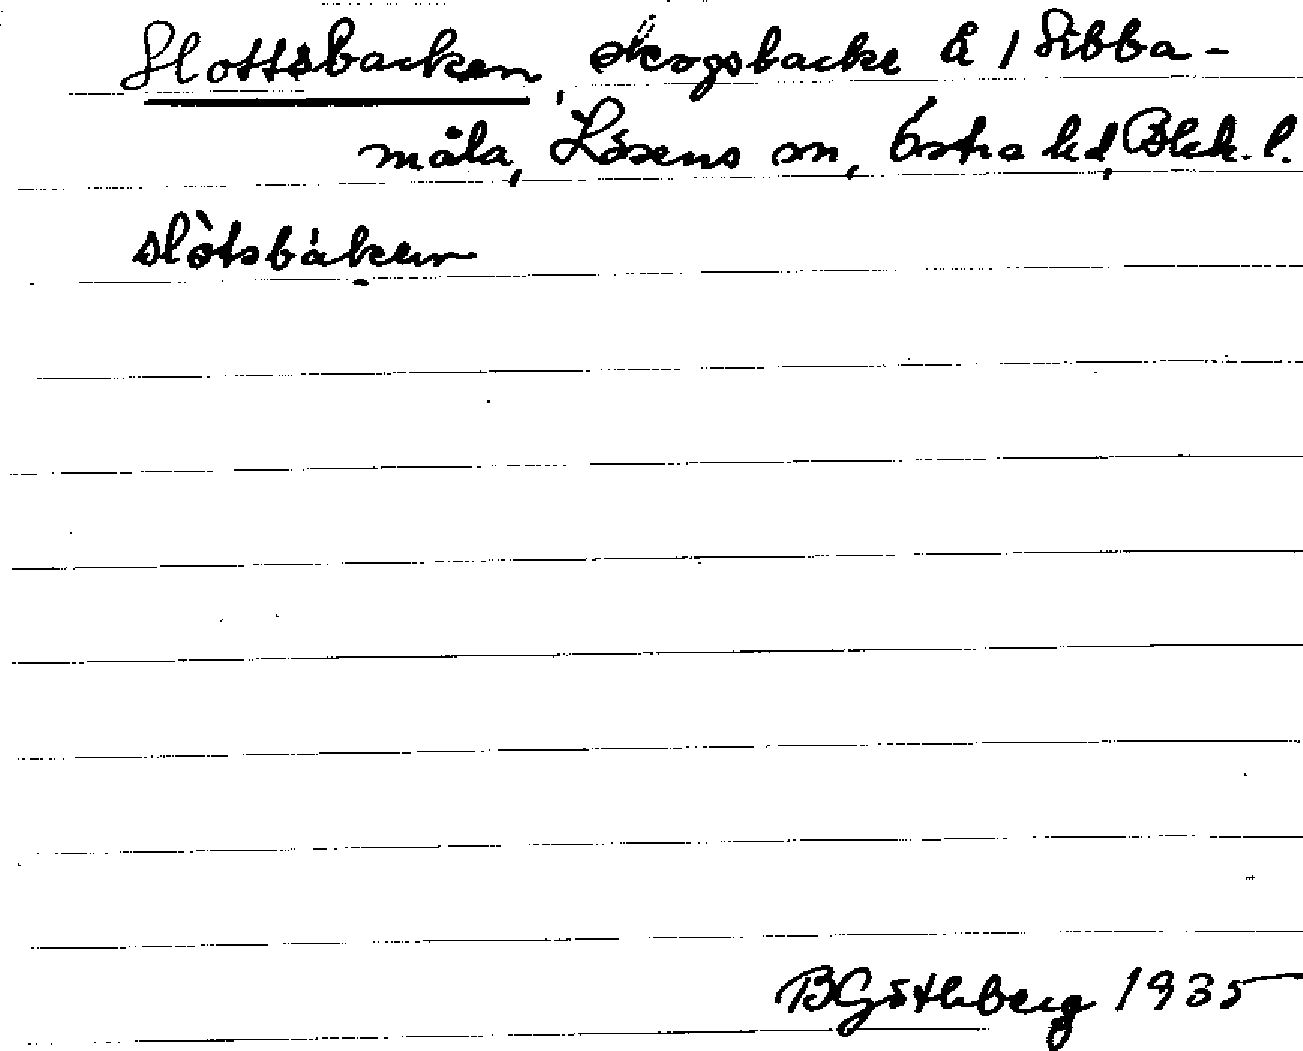 Slottsbacken, skogsbacke å 1 Sibba-
måla, Lösens sn, Östra hd, Blek. l.
slòtsbákenn
BGöthberg 1935